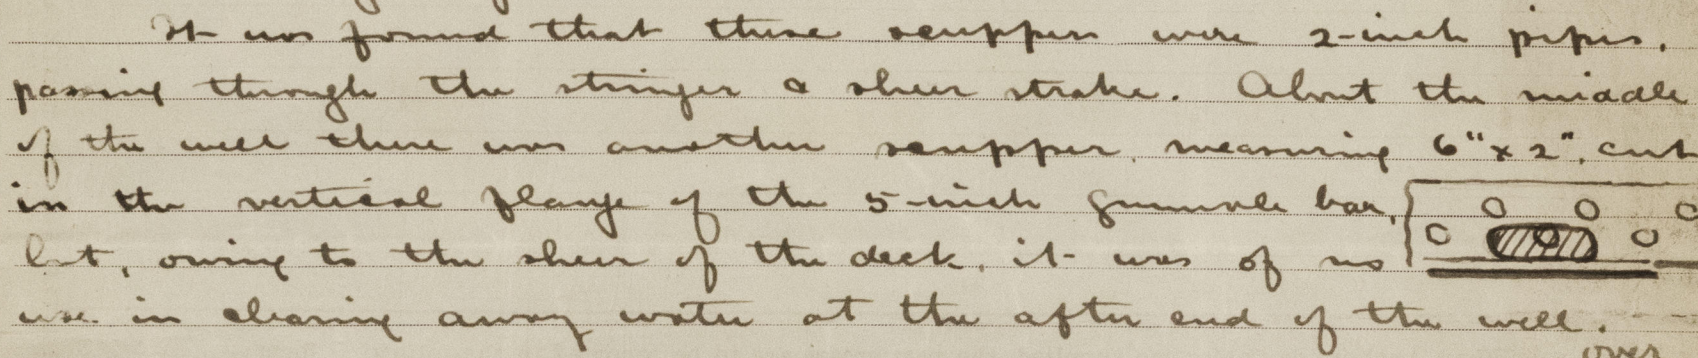 It was found that these scuppers were 2-inch pipes,
passing through the stringer & sheer strake. About the middle
of the well there was another scupper, measuring 6" x 2", cut
in the vertical flange of the 5-inch gunwale bar,
but, owing to the sheer of the deck, it was of no
use in clearing away water at the after end of the well.
over